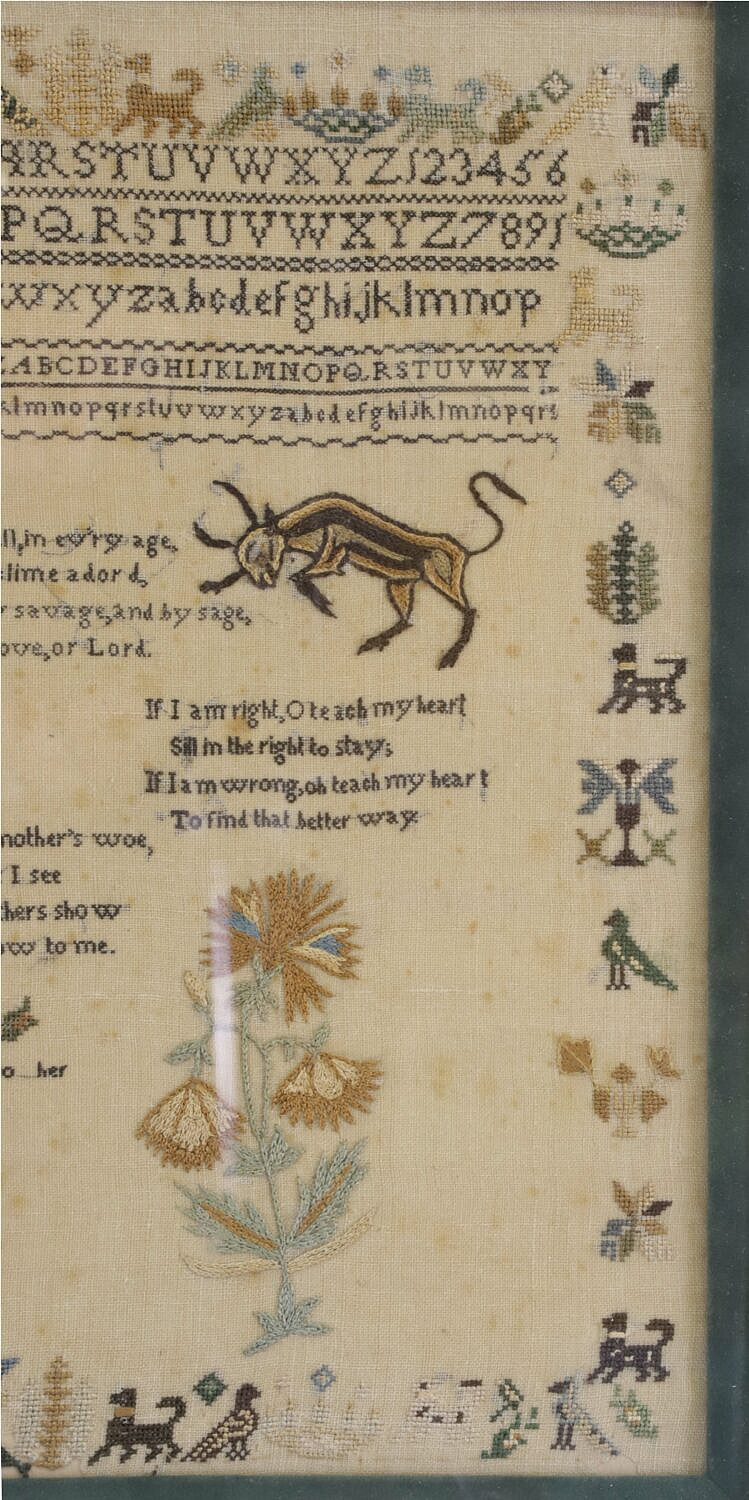 QRSTUVWXYZ123456
PQRSTUVWXYZ7891
wxyzabcdefghijklmnop
ZABCDEFGHIJKLMNOPQRSTUVWXY
klmnopqrstuvwxyzabcdefghijklmnopqrs
ll,in ev'ry age,
lime adord,
r savage,and by sage,
ove,or Lord.
If I am right,O teach my heart
Sill in the right to stay;
If I am wrong,oh teach my heart
To find that better way:
nother's woe,
I see
thers show
ow to me.
o her